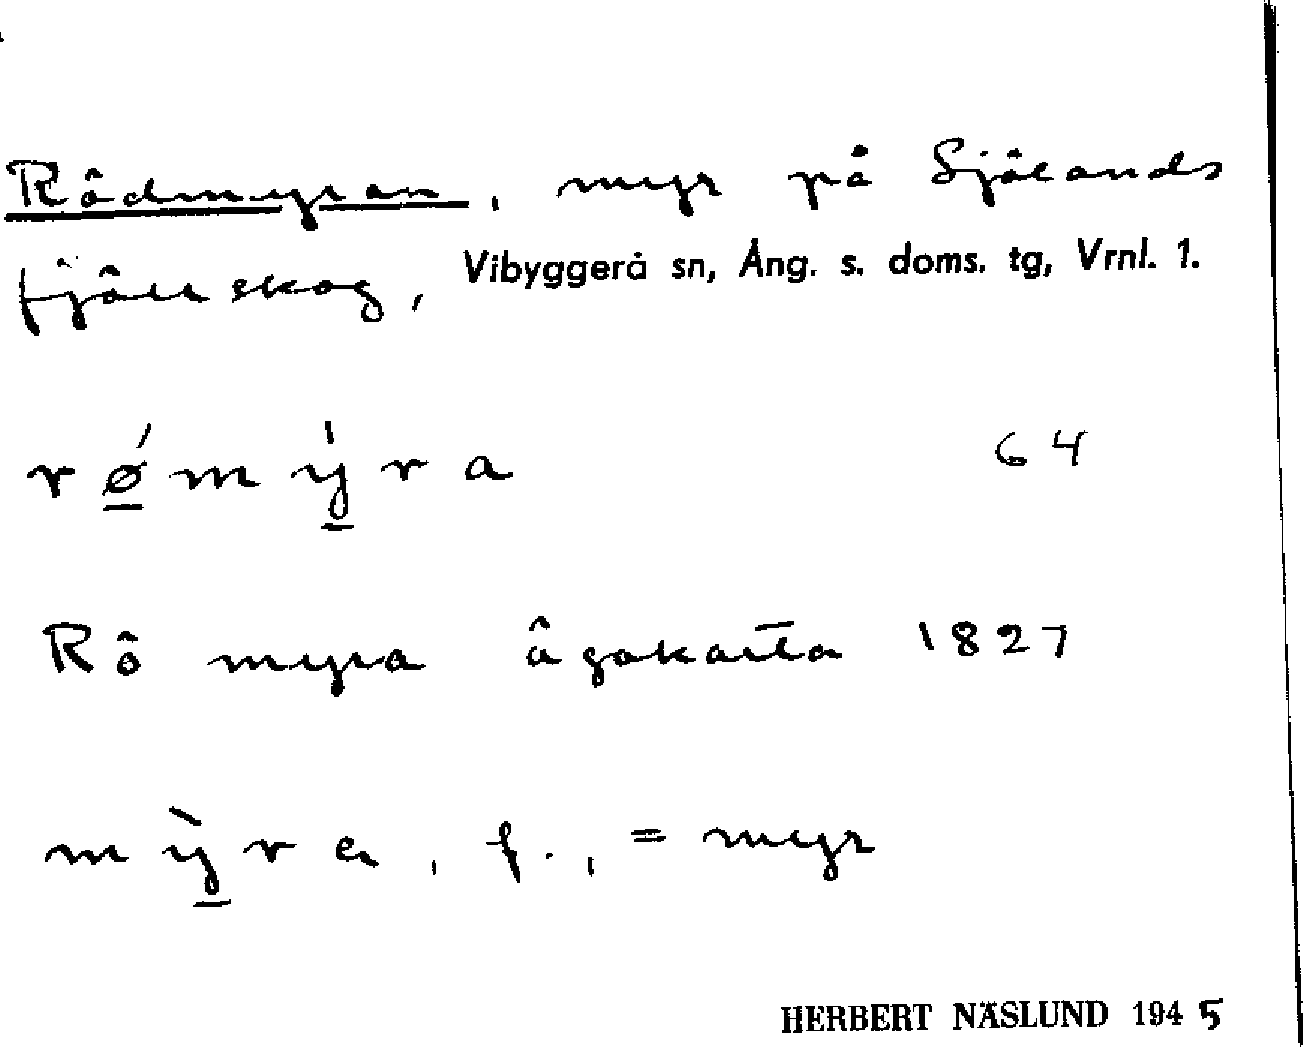 Rödmyran, myr på Själands
fjällskog, Vibyggerå sn, Ång. s. doms. tg, Vrnl. 1.
rǿ̱mý̱ra 64
Rö myra ägokarta 1827
mỳ̱ra, f., = myr
HERBERT NÄSLUND 1945